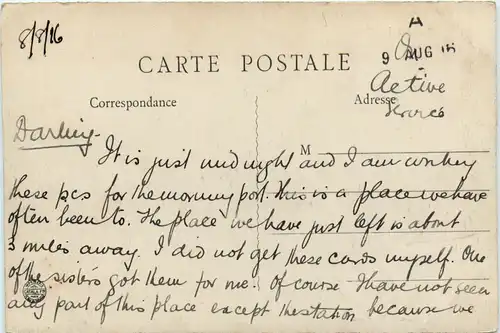 8/8/16
A
9 AUG 16
On
Active
Service
CARTE POSTALE
Correspondance
Adresse
Darling-
M
It is just midnight and I am writing
these pcs for the morning post. This is a place we have
often been to. The place we have just left is about
3 miles away. I did not get these cards myself. One
of the sisters got them for me. Of course I have not seen
any part of this place except the station because we